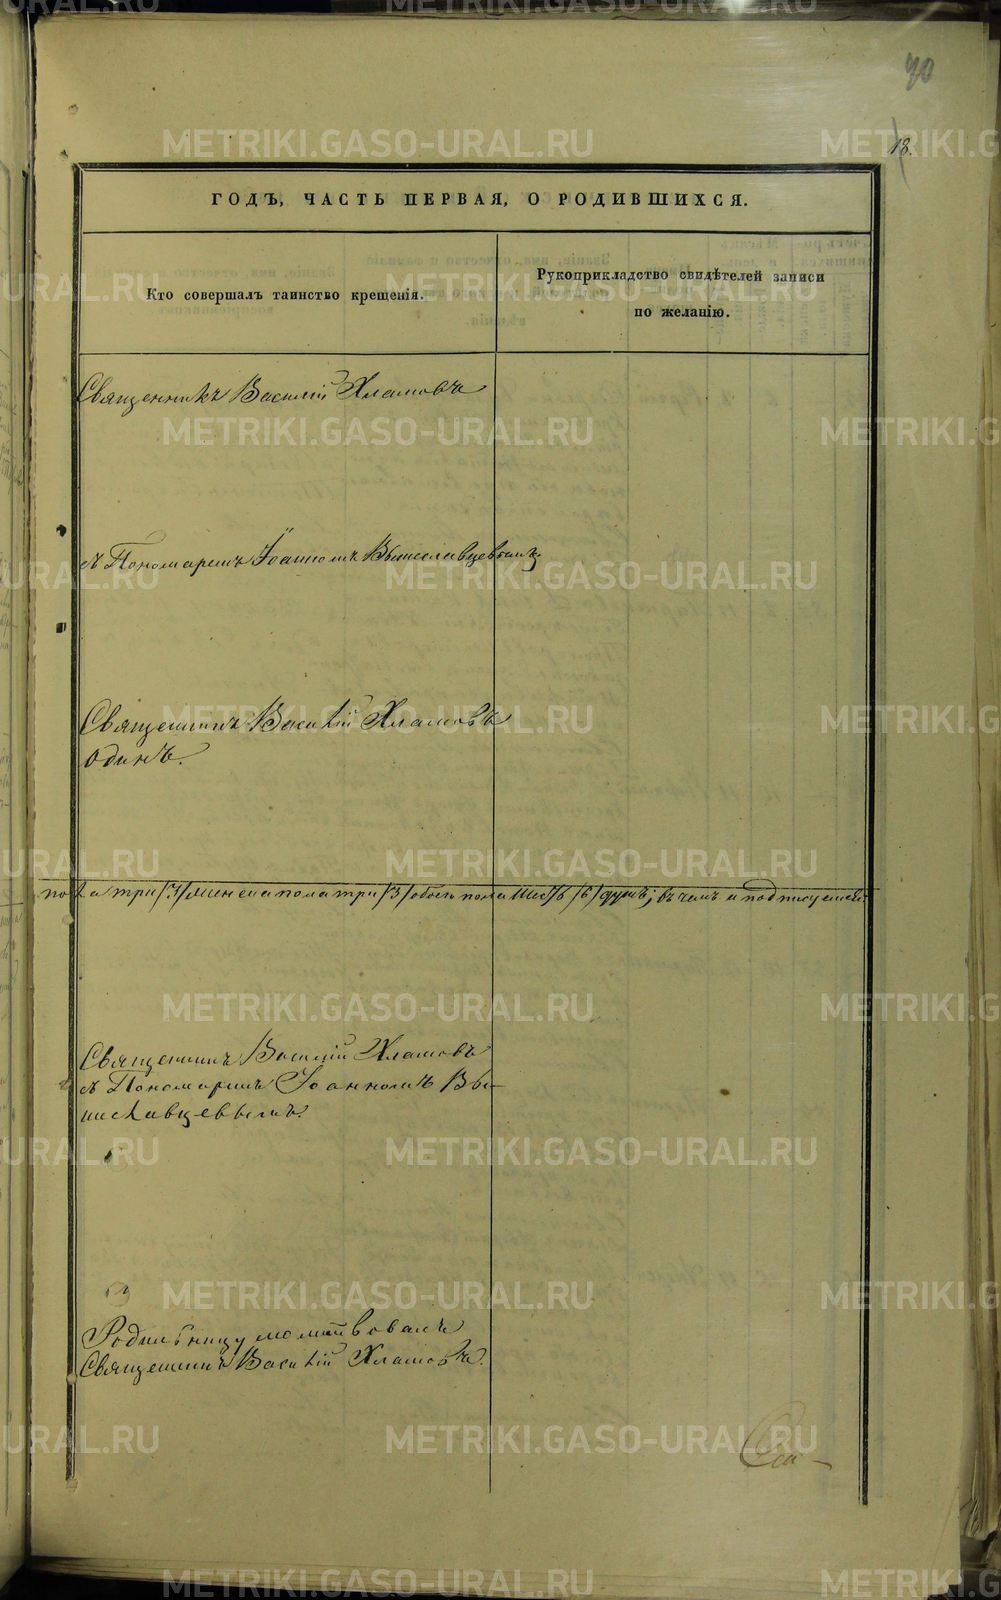 70
18.
ГОДЪ, ЧАСТЬ ПЕРВАЯ, О РОДИВШИХСЯ.
Кто совершалъ таинство крещенія.
Рукоприкладство свидѣтелей записи
по желанію.
Священникъ Василій Хламовъ
съ Пономаремъ Іоанномъ Вышеславцевымъ
Священникъ Василій Хламовъ
одинъ.
пола три /3/ женска пола три /3/ обоего пола шесть /6/ душъ; въ чемъ и подписуемся:
Священникъ Василій Хламовъ
съ Пономаремъ Іоанномъ Вы-
шеславцевымъ.
Родильницу молитвовалъ
Священникъ Василій Хламовъ.
METRIKI.GASO-URAL.RU